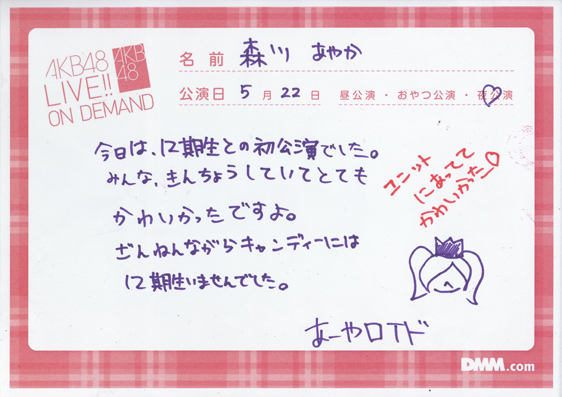 AKB48
LIVE!!
ON DEMAND
AKB
48
名前 森川 あやか
公演日 5月22日 昼公演・おやつ公演・夜公演
今日は、12期生との初公演でした。
みんな、きんちょうしていてとても
かわいかったですよ。
ざんねんながらキャンディーには
12期生いませんでした。
ユニット
にあってて
かわいかった♡
あーやロイド
DMM.com